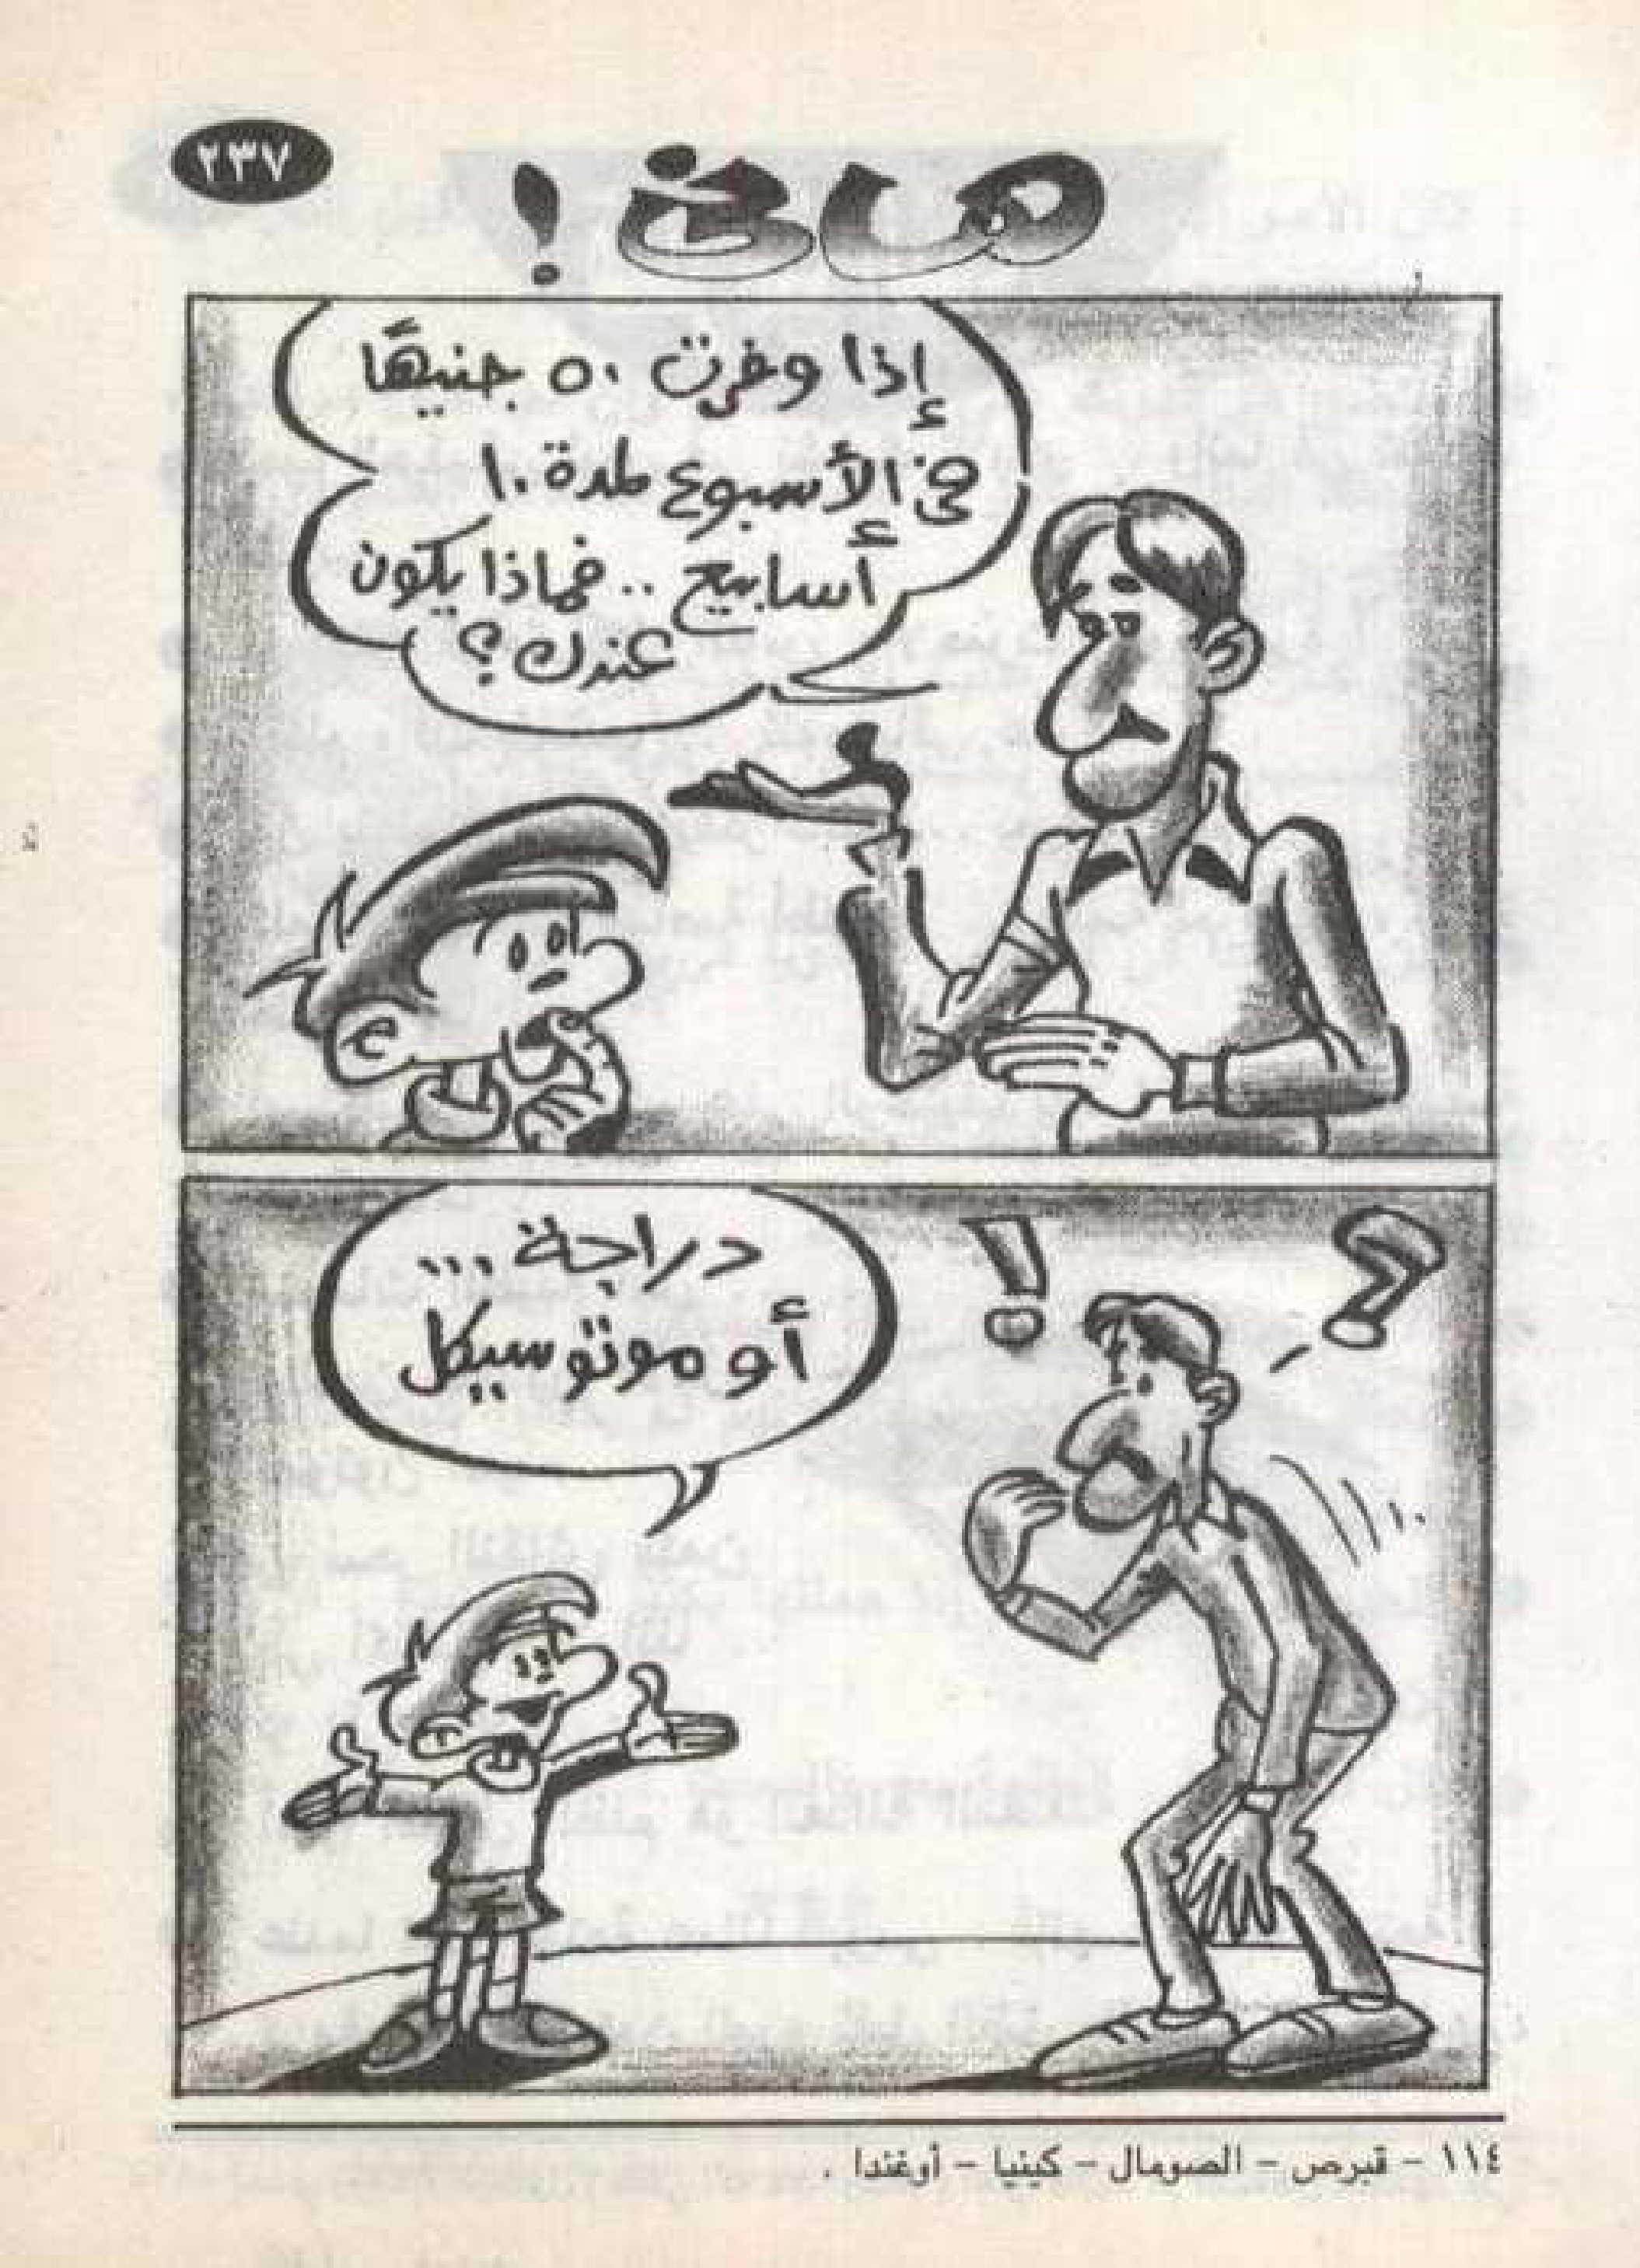 ٢٣٧
هانى !
إذا وفرت ٥٠ جنيهًا
فى الأسبوع لمدة ١٠
أسابيع .. فماذا يكون
عندك ؟
دراجة ...
أو موتوسيكل
! ؟
١١٤ - قبرص - الصومال - كينيا - أوغندا .